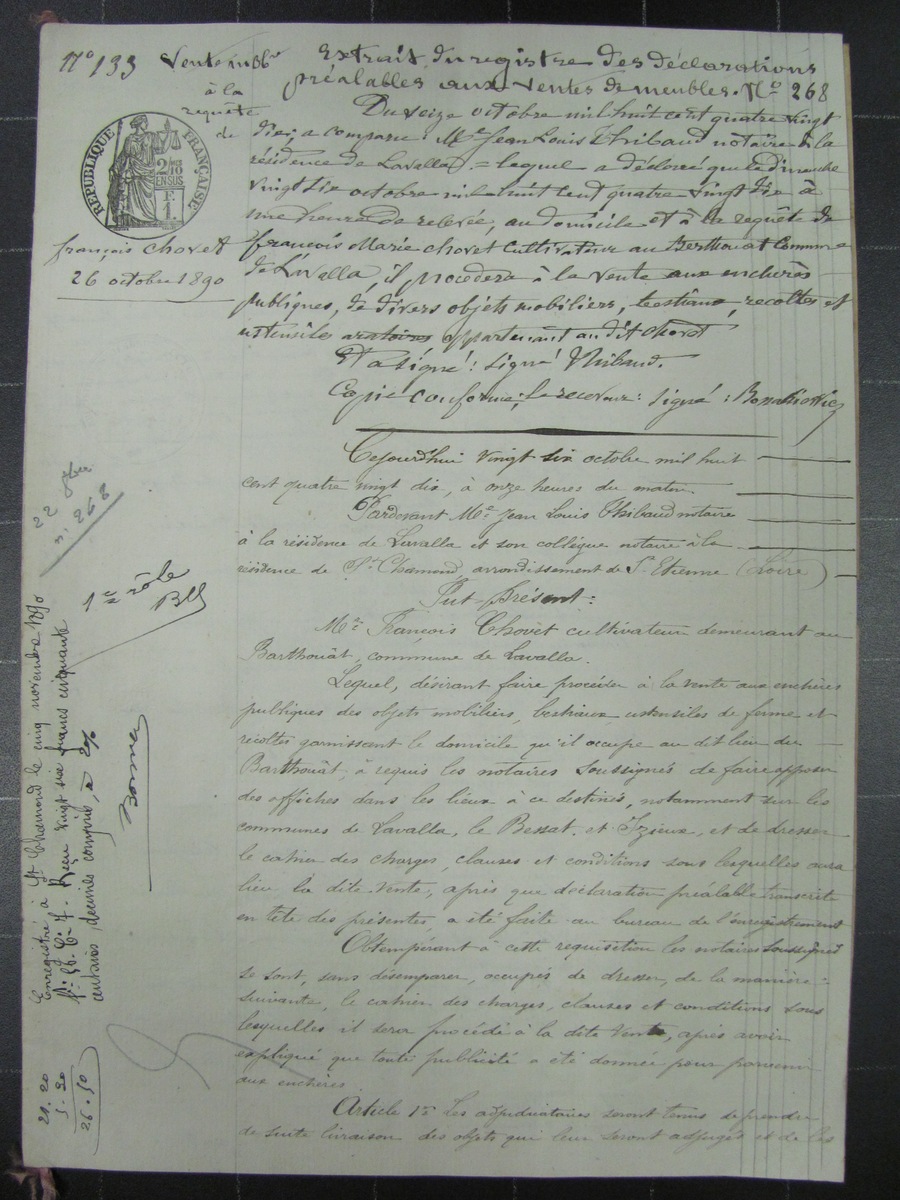 N° 133 Vente mobre
à la
requête
de
RÉPUBLIQUE FRANÇAISE
2/10
EN SUS
F.
1.
françois Chovet
26 octobre 1890
Extrait du registre des déclarations
préalables aux ventes de meubles. N° 268
Du seize octobre mil huit cent quatre vingt
dix, a comparu Me Jean Louis Thibaud notaire à la
résidence de Lavalla = lequel a déclaré que le dimanche
vingt six octobre mil huit cent quatre vingt dix à
une heure de relevée, au domicile et à la requête de
françois Marie Chovet Cultivateur au Berthouat Commune
de Lavalla, il procédera à la vente aux enchères
publiques, de divers objets mobiliers, bestiaux, recoltes et
ustensile aratoires appartenant au dit Chovet
Et a signé : signé Thibaud.
Copie conforme, Le receveur : signé :
Cejourdhui vingt six octobre mil huit
cent quatre vingt dix, à onze heures du matin.
Pardevant Me Jean Louis Thibaud notaire
à la résidence de Lavalla et son collègue notaire à la
résidence de St Chamond arrondissement de St Etienne (Loire)
Fut Présent :
Mr François Chovet cultivateur demeurant au
Barthouat, commune de Lavalla.
Lequel, désirant faire procéder à la vente aux enchères
publiques des objets mobiliers, bestiaux ustensiles de ferme et
récoltes garnissant le domicile qu'il occupe au dit lieu du
Barthouat, à requis les notaires soussignés de faire apposer
des affiches dans les lieux à ce destinés, notamment sur les
communes de Lavalla, le Bessat, et Izieux, et de dresser
le cahier des charges, clauses et conditions sous lesquelles aura
lieu la dite vente, après que déclaration préalable transcrite
en tête des présentes, a été faite au bureau de l'enregistrement
Obtempérant à cette requisition les notaires soussignés
se sont, sans désemparer, occupés de dresser, de la manière
suivante, le cahier des charges, clauses et conditions sous
lesquelles il sera procédé à la dite vente, après avoir
expliqué que toute publicité a été donnée pour parvenir
aux enchères.
Article 1er les adjudicataires seront tenus de prendre
de suite livraison des objets qui leur seront adjugés et de les
22 8bre
n° 268
1er rôle
Enregistré à St Chamond le cinq novembre 1890
Reçu vingt six francs cinquante
centimes, décimes compris, à 2%
21.20
5.30
26.50